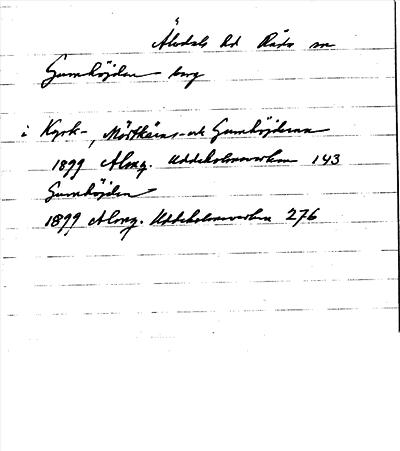 Älvdals hd Råda sn
Gumhöjden berg
i Kyrk-, Mörtkärns- och Gumhöjderna
1899 Alvng. Uddeholmsverken 143
Gumhöjden
1899 Alvng. Uddeholmsverken 276